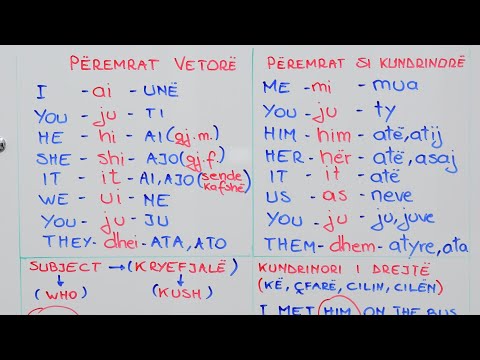 PËREMRAT VETORË
I - ai - UNË
YOU - ju - TI
HE - hi - AI (gj.m.)
SHE - shi - AJO (gj.f.)
IT - it - AI, AJO (sende kafshë)
WE - ui - NE
YOU - ju - JU
THEY - dhei - ATA, ATO
SUBJECT → (KRYEFJALË)
(WHO) (KUSH)
PËREMRAT SI KUNDRINORË
ME - mi - mua
YOU - ju - ty
HIM - him - atë, atij
HER - hër - atë, asaj
IT - it - atë
US - as - neve
YOU - ju - ju, juve
THEM - dhem - atyre, ata
KUNDRINORI I DREJTË
(KË, ÇFARË, CILIN, CILËN)
I MET HIM ON THE BUS